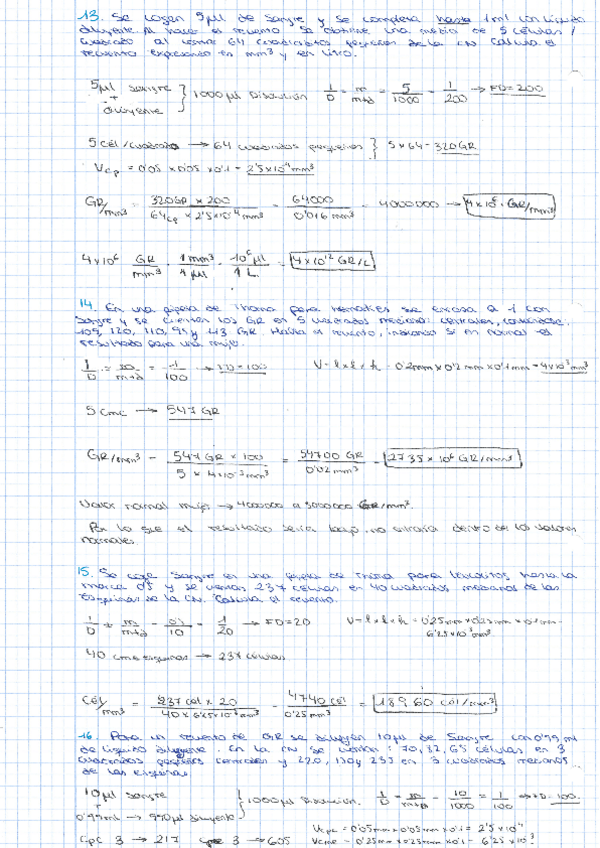 13. Se cogen 5 µl de sangre y se completa hasta 1 ml con líquido
diluyente. Al hacer el recuento se obtiene una media de 5 células/
cuadrado al contar 64 cuadraditos pequeños de la CN. Calcula el
recuento expresado en mm³ y en Litro.
5 µl sangre
+
diluyente
} 1000 µl Disolución 1/D = m/m+d = 5/1000 = 1/200 → FD = 200
5 cél/cuadrado → 64 cuadrados pequeños } 5 x 64 = 320 GR
Vcp = 0'05 x 0'05 x 0'1 = 2'5 x 10⁻⁴ mm³
GR/mm³ = 320 GR x 200 / 64cp x 2'5 x 10⁻⁴ mm³ = 64000 / 0'016 mm³ = 4000000 → 4 x 10⁶ GR/mm³
4 x 10⁶ GR/mm³ · 1 mm³/1 µl · 10⁶ µl/1 L = 4 x 10¹² GR/L
14. En una pipeta de Thoma para hematíes se enrasa a 1 con
sangre y se cuentan los GR en 5 cuadrados medianos centrales,
109, 120, 110, 95 y 113 GR. Halla el recuento, indicando si es normal el
resultado para una mujer.
1/D = m/m+d = 1/100 → FD = 100 V = l x l x h = 0'2 mm x 0'2 mm x 0'1 mm = 4 x 10⁻³ mm³
5 cmc → 547 GR
GR/mm³ = 547 GR x 100 / 5 x 4 x 10⁻³ mm³ = 54700 GR / 0'02 mm³ = 2'735 x 10⁶ GR/mm³
Valor normal mujer → 4000000 a 5000000 GR/mm³.
Por lo que el resultado sería bajo, no entraría dentro de los valores
normales.
15. Se coge sangre en una pipeta de Thoma para leucocitos hasta la
marca 0'5 y se cuentan 237 células en 40 cuadrados medianos de las
esquinas de la CN. Calcula el recuento.
1/D = m/m+d = 0'5/10 = 1/20 → FD = 20 V = l x l x h = 0'25 mm x 0'25 mm x 0'1 mm =
6'25 x 10⁻³ mm³
40 cm esquinas → 237 células
Cél/mm³ = 237 cél x 20 / 40 x 6'25 x 10⁻³ mm³ = 4740 cél / 0'25 mm³ = 18960 cél/mm³
16. Para un recuento de GR se diluyen 10 µl de sangre con 0'99 ml
de líquido diluyente. En la CN se cuentan: 70, 82, 65 células en 3
cuadrados pequeños centrales y 220, 130 y 255 en 3 cuadrados medianos
de las esquinas.
10 µl sangre
+
0'99 ml → 990 µl diluyente
} 1000 µl Disolución. 1/D = m/m+d = 10/1000 = 1/100 → FD = 100.
cpc 3 → 217 3 → 605
Vcpc = 0'05 mm x 0'05 mm x 0'1 = 2'5 x 10⁻⁴
Vcme = 0'25 mm x 0'25 mm x 0'1 = 6'25 x 10⁻³